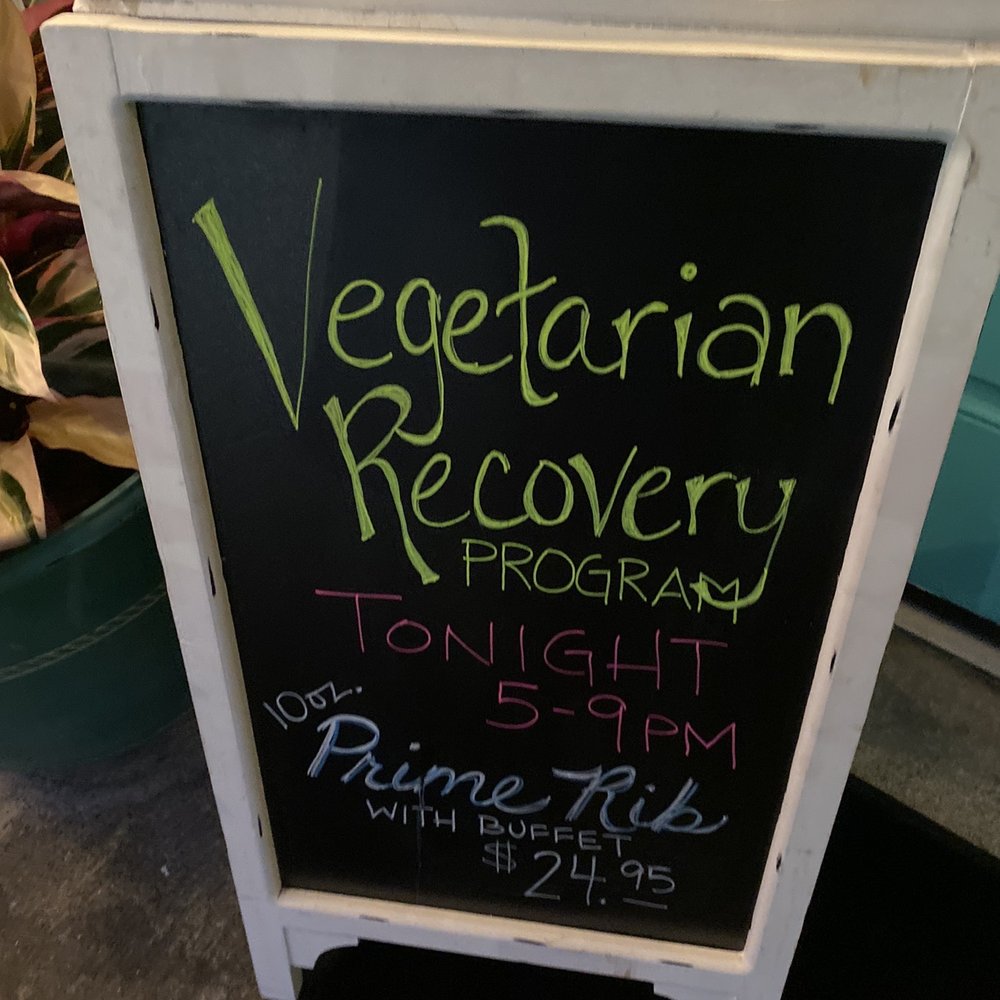 Vegetarian
Recovery
PROGRAM
TONIGHT
5-9PM
10oz.
Prime Rib
WITH BUFFET
$24.95